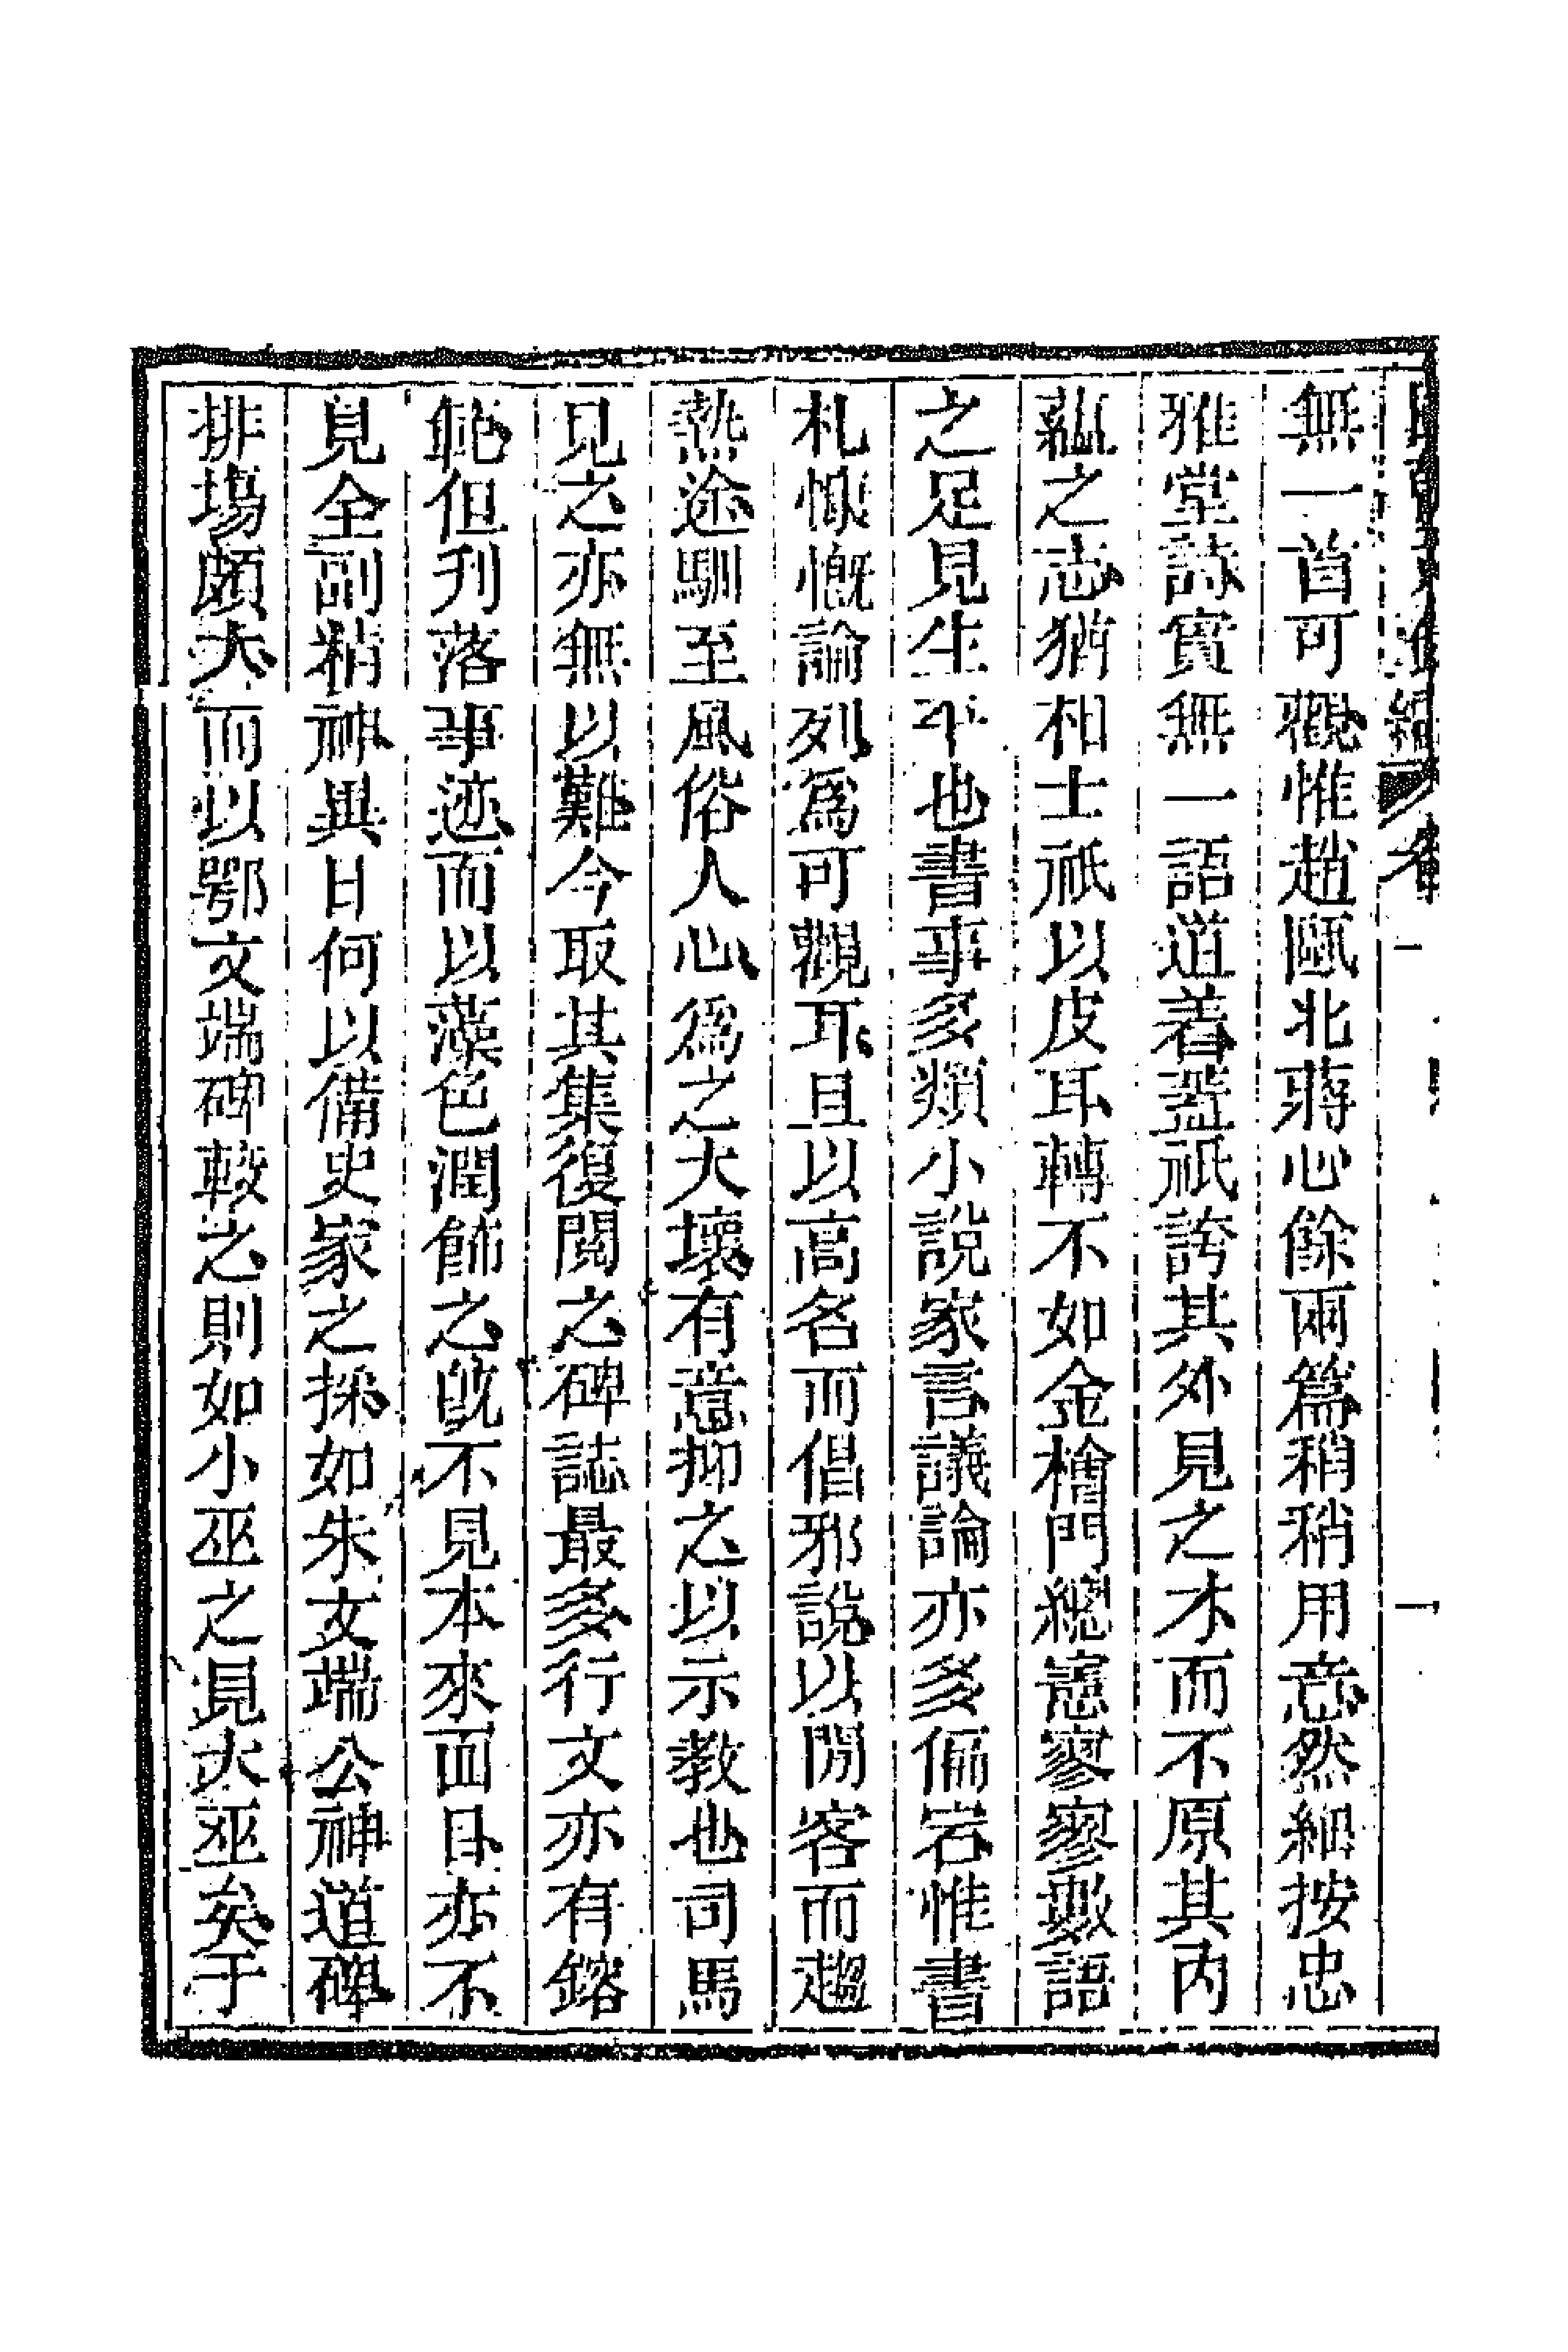 無一首可觀惟趙甌北蔣心餘兩篇稍稍用意然細按忠
雅堂詩實無一語道着蓋祇誇其外見之才而不原其內
蘊之志猶相士祇以皮耳轉不如金檜門總憲寥寥數語
之足見生平也書事多類小說家言議論亦多偏宕惟書
札慷慨論列爲可觀耳且以高名而倡邪說以閒客而趨
熱途馴至風俗人心爲之大壞有意抑之以示教也司馬
見之亦無以難今取其集復閱之碑誌最多行文亦有鎔
範但刋落事迹而以藻色潤飾之旣不見本來面目亦不
見全副精神異日何以備史家之採如朱文端公神道碑
排塲頗大而以鄂文端碑較之則如小巫之見大巫矣于